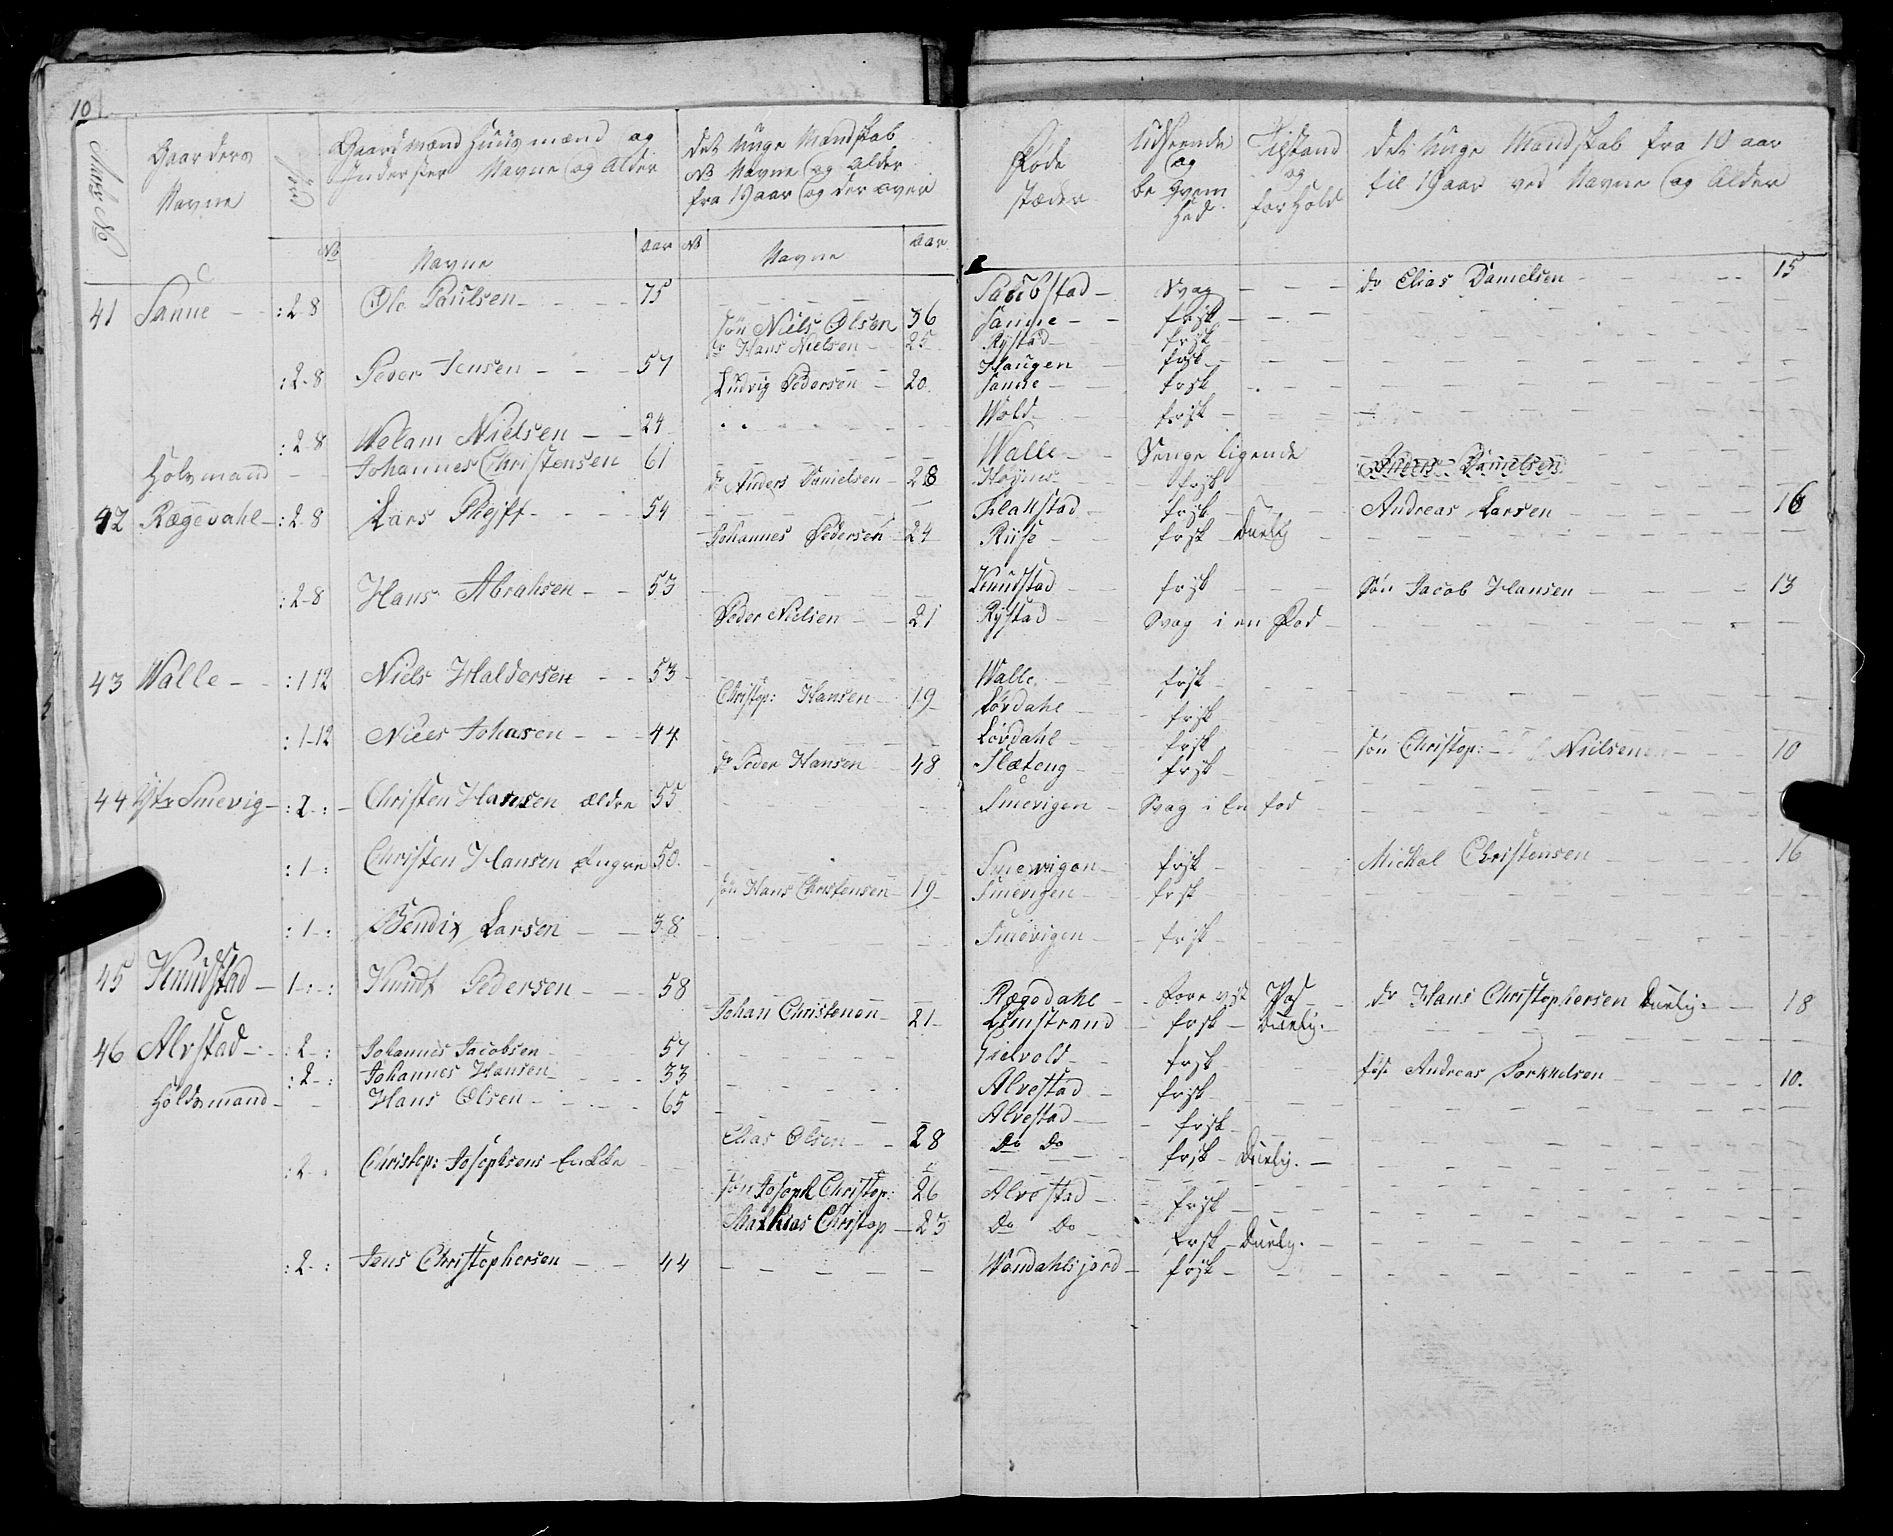 10
Matr No | Gaarders Navne | Jord | Gaardmænd Huusmænd og Inderster Navne og Alder | Det Unge Mandskab No Navne og Alder fra 19 aar og der over | Føde stæder | Udseende og beqvem Hed | Tilstand og forHold | Det Unge Mandskab fra 10 aar til 19 aar ved Navne og Alder
No | Navne | aar | No | Navne | aar
41 Sanne :2-8 Ole Paulsen 75 svag do Elias Danielsen 15
søn Niels Olsen 36 Sanne frisk
do Hans Nielsen 25 Rystad frisk
:2-8 Peder Jensen 57 Haugen frisk
Ludvig Pedersen 20 Sanne frisk
:2-8 Welam Nielsen 24 Wold frisk
Holvmand Johannes Christensen 61 Walle Senge ligende
do Anders Danielsen 28 frisk Anders Danielsen
42 Rægevahl :2-8 Lars 54 Flakstad frisk Andreas Larsen 16
Johannes Pedersen 24 Riise frisk Duelig
:2-8 Hans Abrahsen 53 Knudstad frisk Søn Jacob Hansen 13
Peder Nielsen 21 Rystad Svag i en Fod
43 Walle :1 12 Niels Haldersen 53 Walle frisk
Christop: Hansen 19 Lørdahl frisk
:1-12 Niels Johasen 44 Lørdahl frisk søn Christop: Nielsen 10
do Peder Hansen 48 Slæteng frisk
44 Yst Smevig :2-:- Christen Hansen ældre 55 Smevigen Svag i En fod
:1-: Christen Hansen Yngre 50 Smewigen frisk Mickal Christensen 16
søn Hans Christensen 19 Smevigen frisk
:1-: Bendix Larsen 38 Smevigen frisk
45 Knudstad 1-:-: Knudt Pedersen 58 Rægedahl do Hans Christophersen Duelig 18
Johan Christenen 21 Limstrand frisk Duelig
46 Alvstad :2-: Johannes Jacobsen 57 frisk
:2-: Johannes Hansen 33 Alvestad frisk Andreas Torkkelsen 10
Holdvmand Hans Olsen 65 Alvestad frisk
Elias Olsen 28 Do Do frisk Duelig.
:2-: Christop: Josephsens Enkke
søn Joseph Christop: 26 Alvestad frisk
Mathias Christop 23 Do Do frisk Duelig.
:2-: Jens Christophersen 44 Wandahlsjord frisk